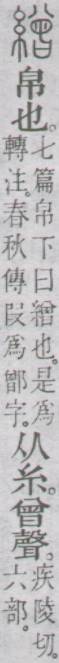 繒帛也。七篇帛下曰繒也。是爲
轉注。春秋傳叚爲鄫字。从糸。曾聲。疾陵切。
六部。